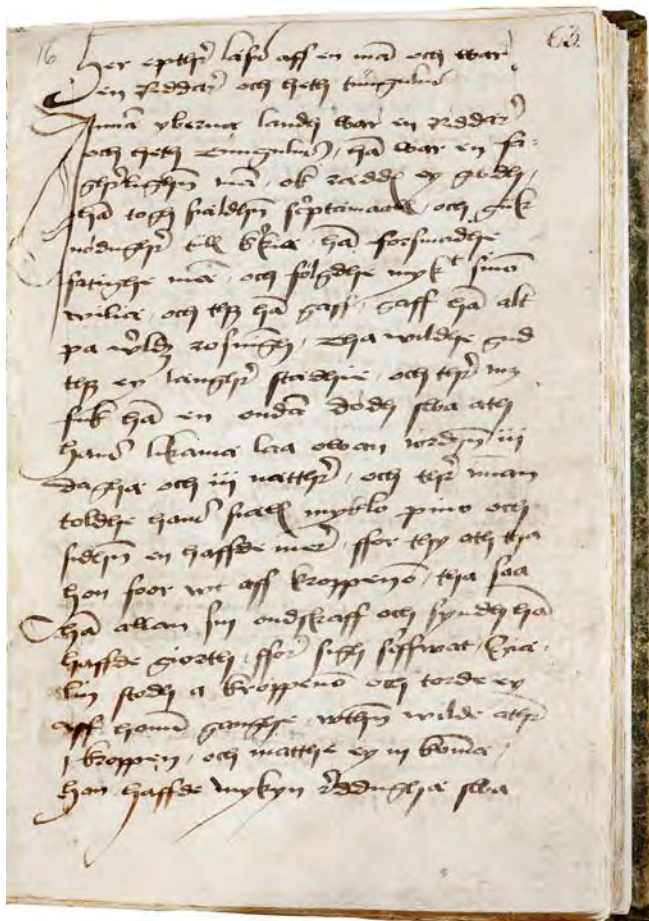 16 63.
Her epthr läss aff en mā och war
Den Riddar och heth tungulus
Innā yberna landh war en Riddar
och heth Tungulus, hā war en fa-
ghrlighn mā, ok rädde ey gudh,
hā togh siäldhn scriptamaall, och gik
nödughr till kirkia, hā forsmadhe
fatighe mēn, och fölgdhe mykt sinā
wilia, och thz hā gaff, gaff hā alt
pa werldz rosningh, Tha wildhe gud
thz ey länghr städhia, och thr mz
fik hā en ondā dödh swa ath
hans likama laa owan iordhn iii
dagha och iii natthr, och thr innan
toldhe hans siäll myklo pino och
sidhn en haffde mer, ffor thy ath tha
hon foor wt aff kroppenō, tha saa
hā allan sin ondskaff och syndh hā
haffde giorth, ffor sigh
stodh a kroppenō och torde ey
aff honū ganghe, wthn wilde athr
i kroppen, och matthe ey in komā,
hon haffde mykyn räddugha swa